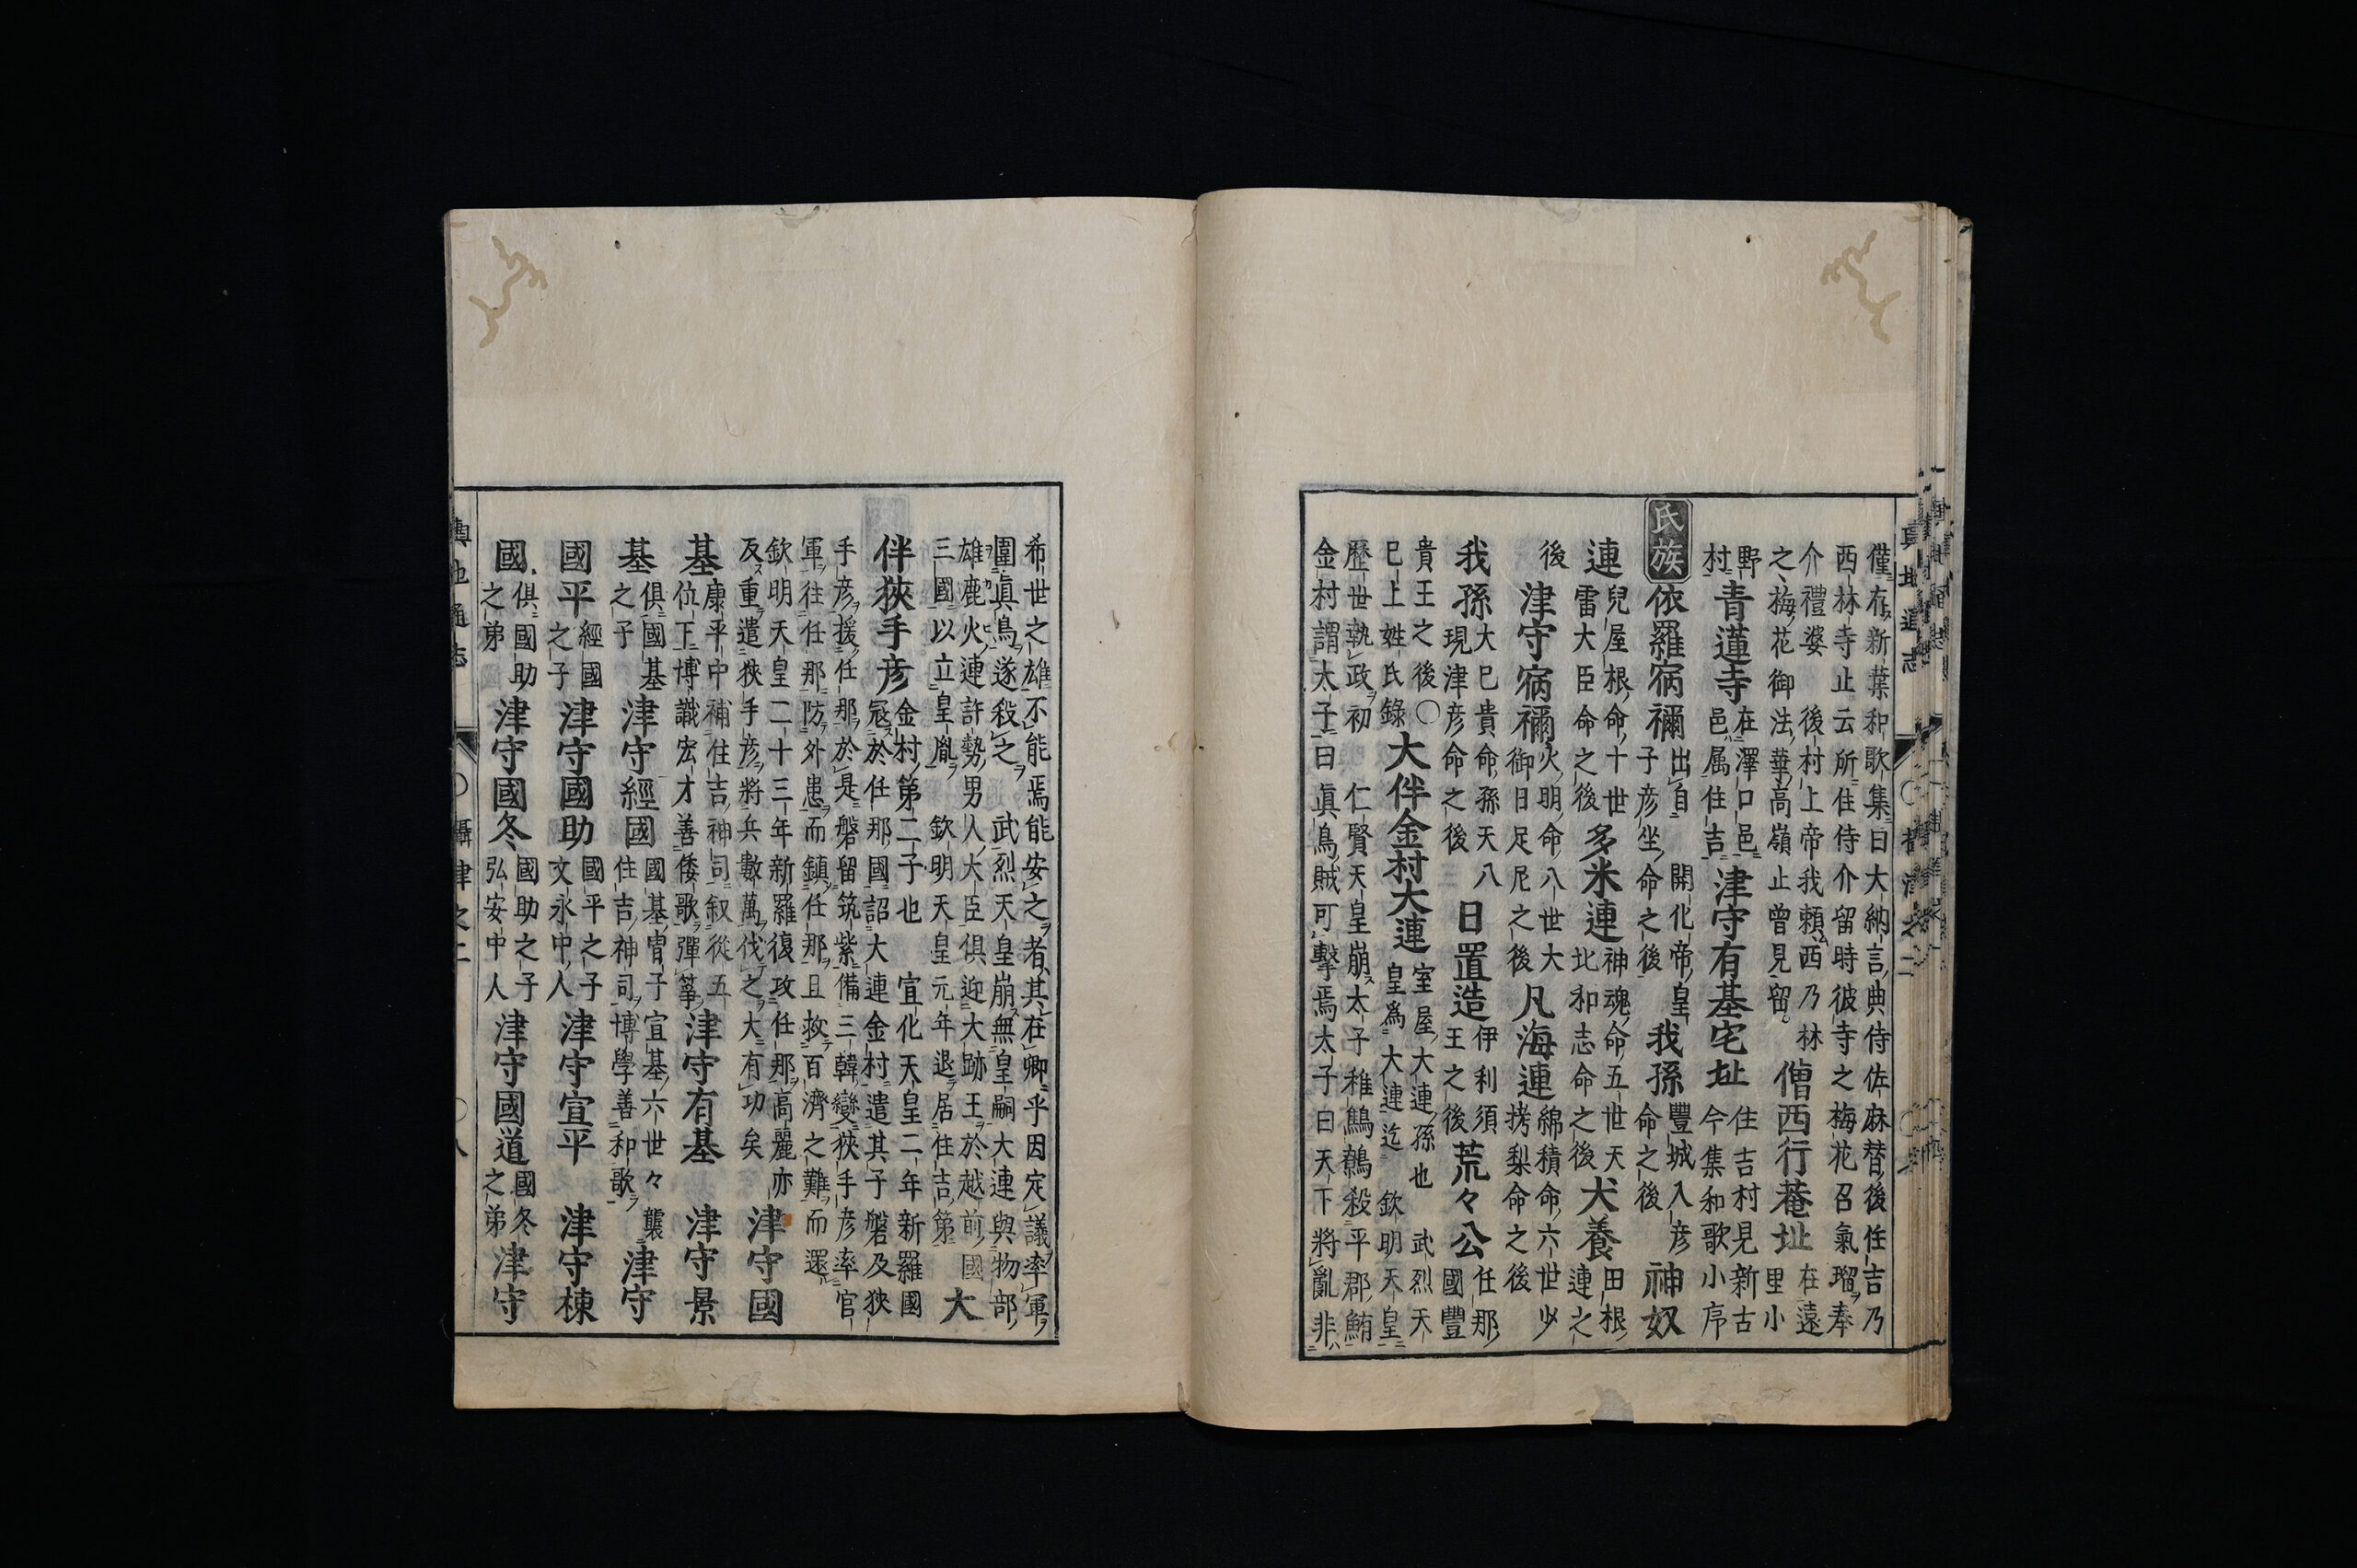 輿地通志
僅存新葉和歌集曰大納言典侍佐麻替後任吉乃
西林寺止云所住侍介留時彼寺之梅花召氣瑠奉
介禮婆　後村上帝我頼西乃林
之梅花御法華高嶺止曾見留。
僧西行菴址　在遠
里小
野
村
青蓮寺　在澤口邑
邑属住吉
津守有基宅址　住吉村見新古
今集和歌小序
氏族
依羅宿禰　出自　開化帝皇
子彦坐命之後
我孫　豐城入彦
命之後
神奴
連　兒屋根命十世
雷大臣命之後
多米連　神魂命五世天
比和志命之後
犬養　田根
連之
後
津守宿禰　火明命八世大
御日足尼之後
凡海連　綿積命六世少
拷梨命之後
我孫　大巳貴命孫天八
現津彦命之後
日置造　伊利須
王之後
荒々公　任那
國豐
貴王之後〇
巳上姓氏錄
大伴金村大連　室屋大連孫也　武烈天
皇爲大連迄　欽明天皇
歷世執政初　仁賢天皇崩太子稚鷦鷯殺平郡鮪
金村謂太子曰眞鳥賊可擊焉太子曰天下將亂非
希世之雄不能焉能安之者其在卿乎因定議率軍
圍眞鳥遂殺之　武烈天皇崩無皇嗣大連與物部
雄鹿火連許勢男人大臣俱迎大跡王於越前國
三國以立皇胤　欽明天皇元年退居住吉第
大
伴狹手彦　金村第二子也　宣化天皇二年新羅國
冦於任那國詔大連金村遣其子磐及狹
手彦援任那於是磐留筑紫備三韓變狹手彦率官
軍往任那防外患而鎮任那且救百濟之難而還
欽明天皇二十三年新羅復攻任那高麗亦
反重遣狹手彦將兵數萬伐之大有功矣
津守國
基　康平中補住吉神司叙從五
位下博識宏才善倭歌彈箏
津守有基　津守景
基　俱國基
之子
津守經國　國基冑子宣基六世々襲
住吉神司博學善和歌
津守
國平　經國
之子
津守國助　國平之子
文永中人
津守宣平　津守棟
國　俱國助
之弟
津守國冬　國助之子
弘安中人
津守國道　國冬
之弟
津守
輿地通志　〇攝津之二　〇八